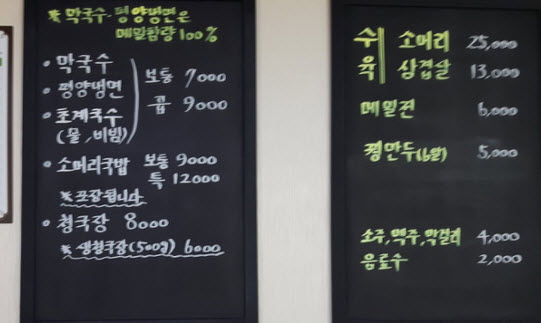 ※ 막국수. 평양냉면은
메밀함량 100%
• 막국수
• 평양냉면
• 초계국수
(물, 비빔)
보통 7000
곱 9000
• 소머리국밥 보통 9000
특 12000
※ 포장됩니다
• 청국장 8000
※ 생청국장(500g) 6000
수육
소머리 25,000
삼겹살 13,000
메밀전 6,000
찐만두(6알) 5,000
소주, 맥주, 막걸리 4,000
음료수 2,000